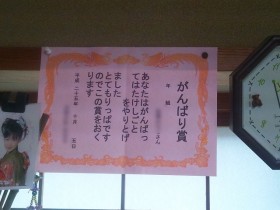 がんばり賞
年 組
さん
あなたはがんばっ
てはたけしごと
をやりとげ
ました
とてもりっぱです
のでこの賞をおく
ります
平成 二十五年 月 日